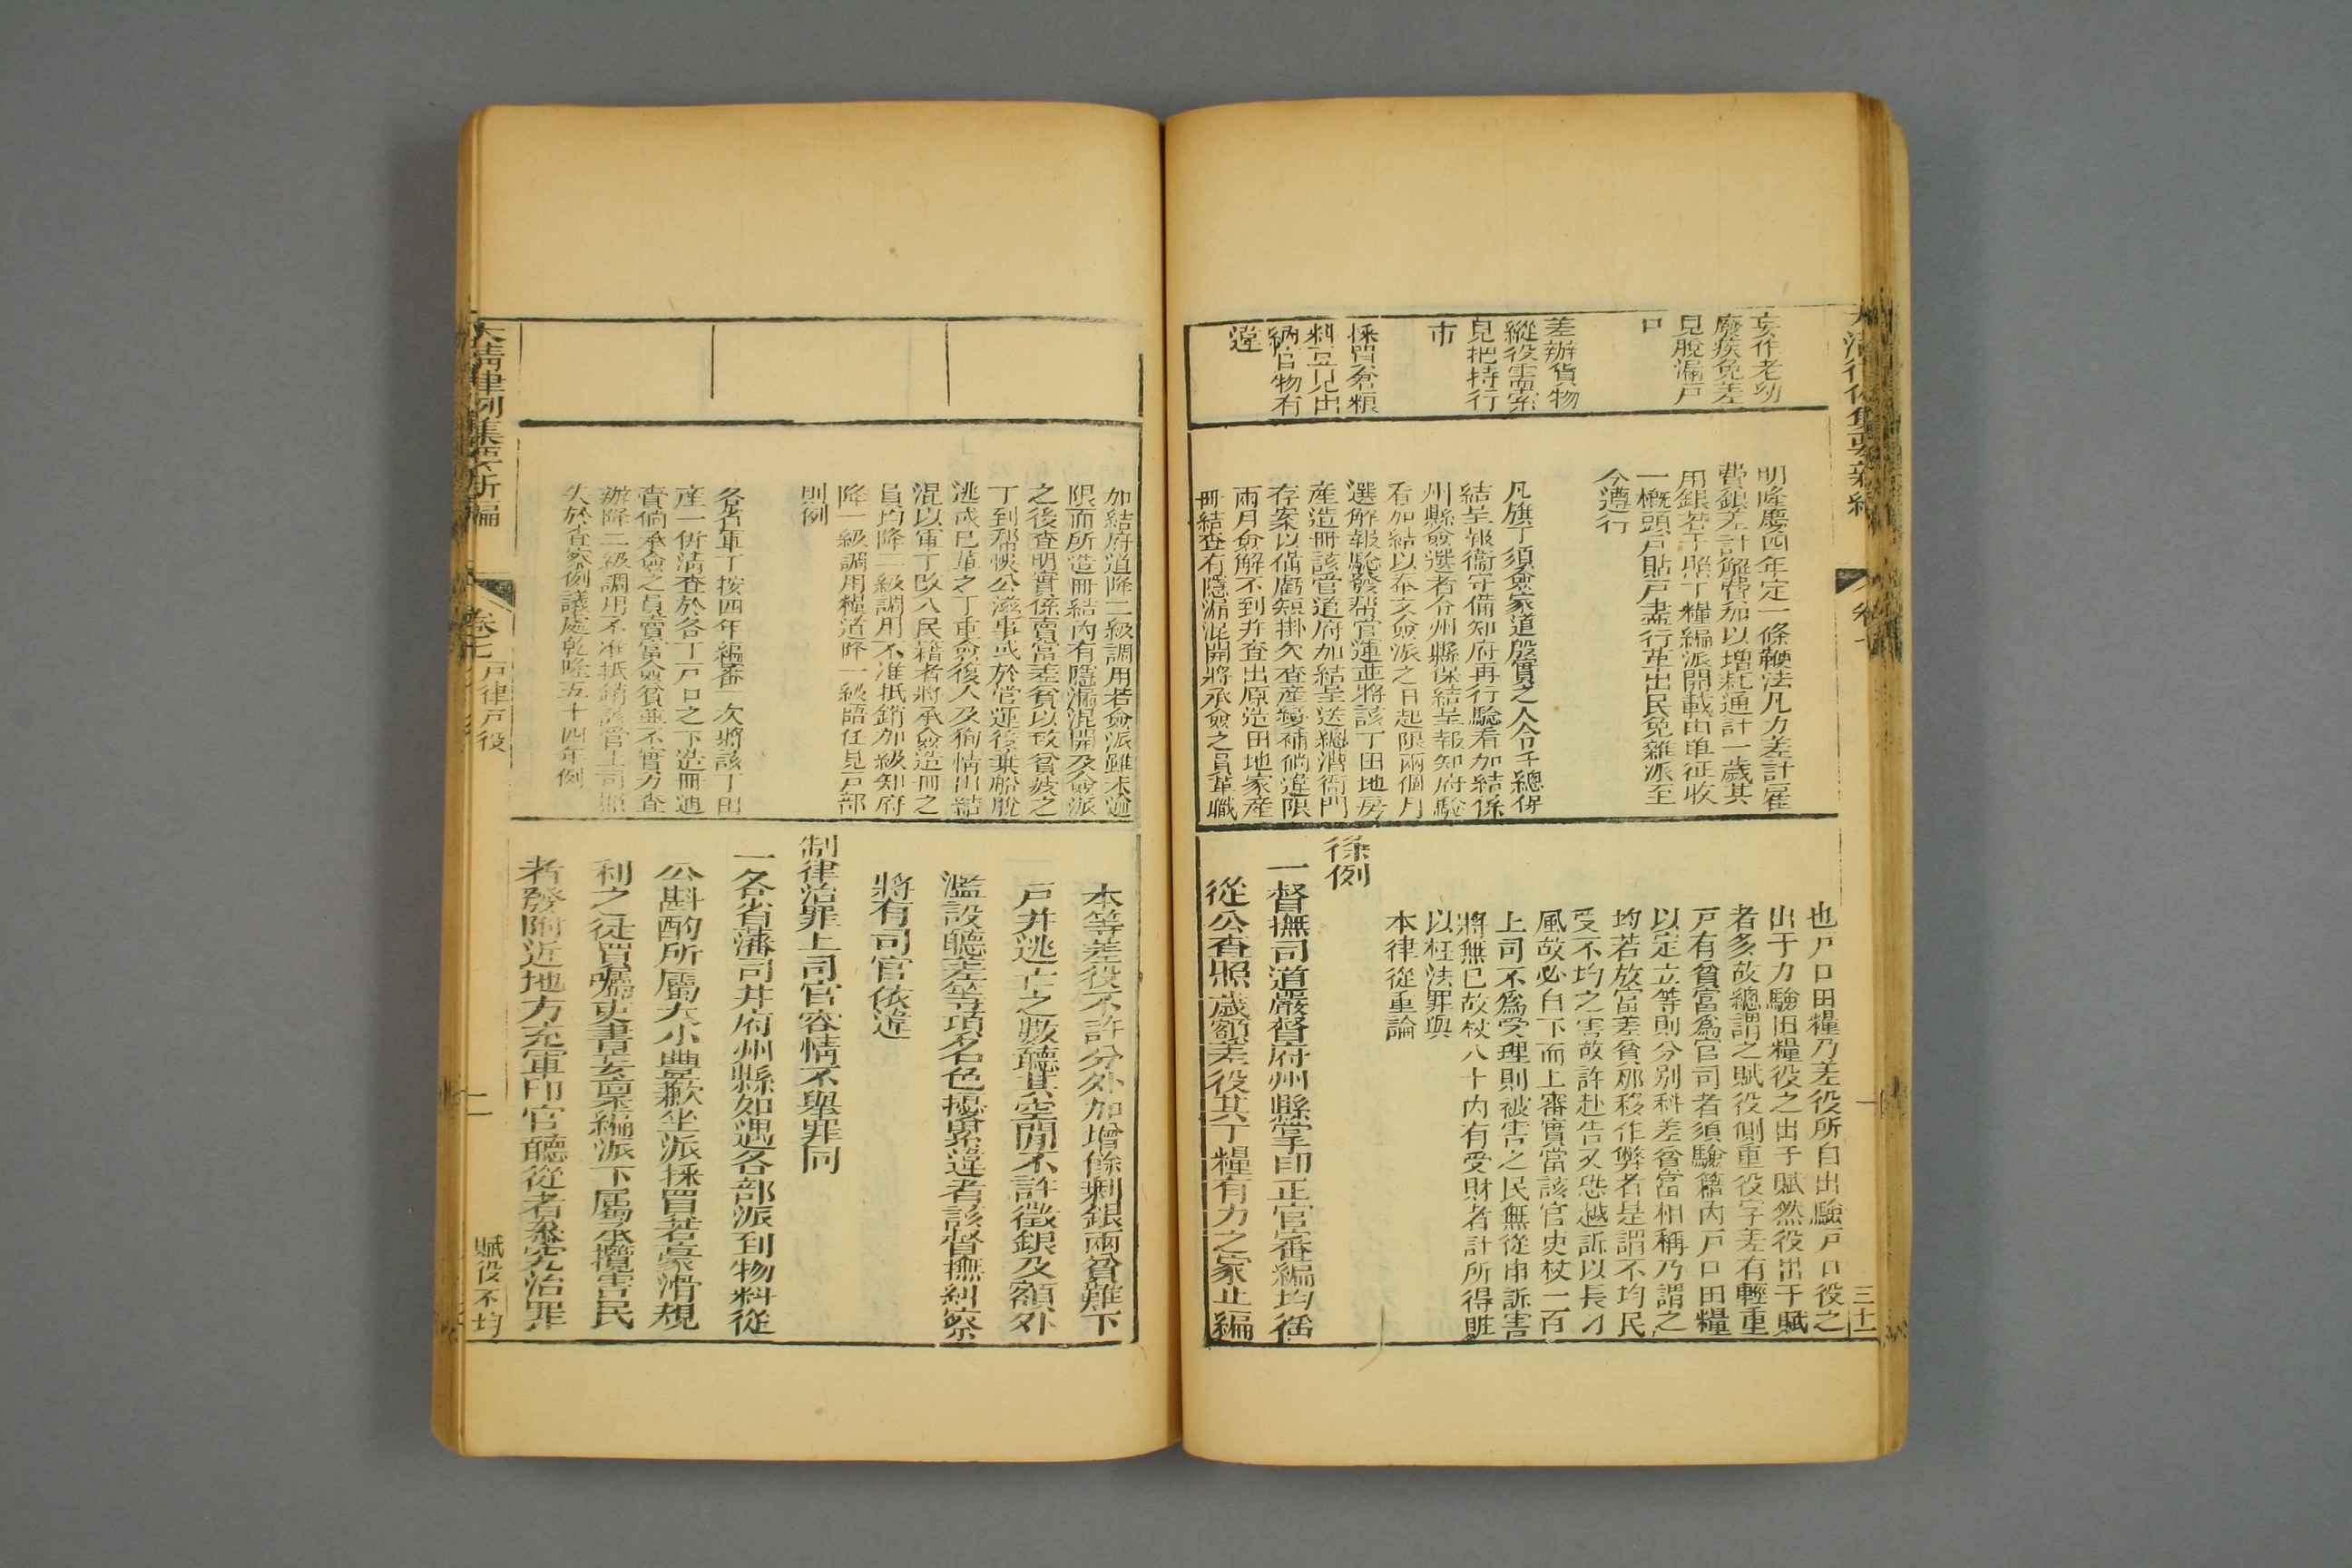 妄作老幼
廢疾免差
見脫漏戶
口
差辦貨物
縱役需索
見把持行
市
料豆見出
納官物有
違
明隆慶四年定一條鞭法凡力差計雇
費銀差計解費加以增耗通計一歲其
用銀若干照丁糧編派開載由單征收
一概頭戶貼戶盡行革出民免雜派至
今遵行
凡旗丁須僉家道殷實之人令千總保
結呈報衛守備知府再行驗看加結係
州縣僉選者令州縣保結呈報知府驗
看加結以奉文僉派之日起限兩個月
選解報驗發幫官運並將該丁田地房
產造冊該管道府加結呈送總漕衙門
存案以備虧短掛欠查產變補倘違限
兩月僉解不到并查出原造田地家產
冊結查有隱漏混開將承僉之員革職
也戶口田糧乃差役所自出驗戶口役之
出于力驗田糧役之出于賦然役出于賦
者多故總謂之賦役側重役字差有輕重
戶有貧富為官司者須驗籍內戶口田糧
以定立等則分別科差貧富相稱乃謂之
均若放富差貧那移作弊者是謂不均民
受不均之害故許赴告又恐越訴以長刁
風故必自下而上審實當該官吏杖一百
上司不為受理則被害之民無從申訴害
將無已故杖八十內有受財者計所得贓
以枉法罪與
本律從重論
條例
一督撫司道嚴督府州縣掌印正官審編均徭
從公查照歲額差役其丁糧有力之家止編
三十一
加結府道降二級調用若僉派雖未逾
限而所造冊結內有隱漏混開及僉派
之後查明實係賣富差貧以致貧疲之
丁到幫悞公滋事或於官運後棄船脫
逃或已革之丁重僉後人及狥情出結
混以軍丁改入民籍者將承僉造冊之
員均降二級調用不准抵銷加級知府
降一級調用糧道降一級畱任見戶部
則例
各省軍丁按四年編審一次將該丁田
產一併清查於各丁戶口之下造冊通
賣倘承僉之員賣富僉貧並不實力查
辦降二級調用不准抵銷該管上司照
失於查察例議處乾隆五十四年例
本等差役不許分外加增餘剩銀兩貧難下
戶并逃亡之數聽其空閒不許徵銀及額外
濫設聽差等項名色擾累違者該督撫糾察
將有司官依違
制律治罪上司官容情不舉罪同
一各省藩司并府州縣如遇各部派到物料從
公斟酌所屬大小豐歉坐派採買若豪滑規
利之徒買囑吏書妄稟編派下屬承攬害民
者發附近地方充軍印官聽從者叅究治罪
大清律例集要新編
卷七
戶律戶役
賦役不均